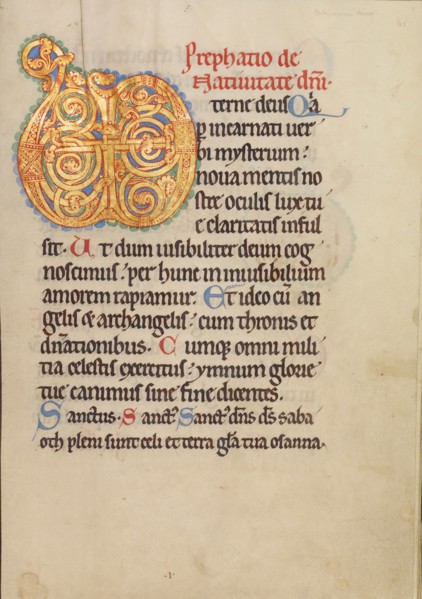 Prephatio de
Nativitate dñi·
terne deus Qͥa
p incarnati ver
bi mysterium:
noua mentis no
stre oculis lux tu
e claritatis inful
sit. Ut dum uisibiliter deum cog
noscimus: per hunc in inuisibilium
amorem rapiamur. Et ideo cũ an
gelis & archangelis: cum thronis et
dñationibus. Cumque omni mili
tia celestis exercitus: ymnum glorie
tue canimus sine fine dicentes.
Sanctus. Sanctꝰ Sanctꝰ dñs ds̃ saba
oth pleni sunt celi et terra gl̃a tua osanna·
·1·